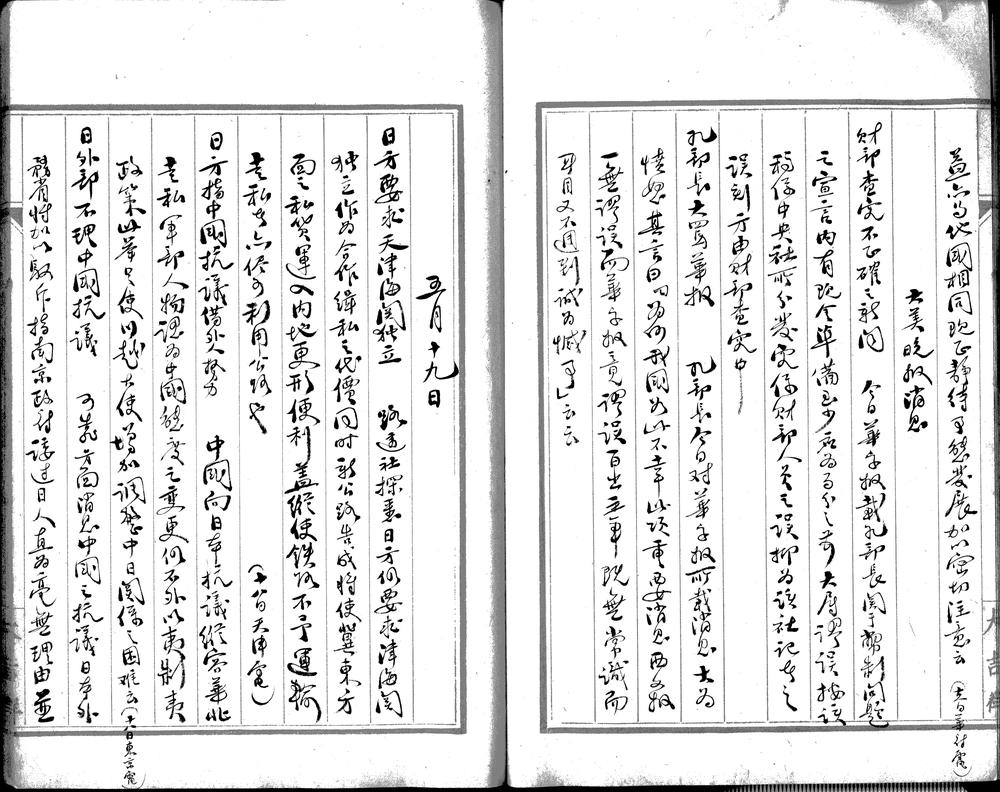 益亦與他國相同現正靜待事態發展加以密切注意云（十六日華府電）
大美晚報消息
財部查究不正確之新聞　今日華字報載孔部長關于幣制問題
之宣言內有現金準備至少應為百分之 大屬謬誤按該
稿係中央社所分發究係財部人員之誤抑為該社記者之
誤刻方由財部查究中
孔部長大罵華報　孔部長今日對華字報所載消息大為
憤怒其言曰為何我國如此不幸此項重要消息西文報
一無謬誤而華字報竟謬誤百出主筆既無常識而
耳目又不週到誠為憾事」云云
五月十九日
日方要求天津海關獨立　路透社探悉日方仍要求津海關
獨立作為合作緝私之代價同時新公路告成將使冀東方
面之私貨運入內地更形便利蓋縱使鐵路不予運輸
走私者亦儘可利用公路也　（十八日天津電）
日方指中國抗議借外人勢力　中國向日本抗議縱容華北
走私軍部人物認為中國態度之變更仍不外以夷制夷
政策此舉只使川越大使增加調整中日關係之困難云（十八日東京電）
日外部不理中國抗議　可靠方面消息中國之抗議日本外
務省將加以駁斥指南京政府諉過日人直為毫無理由並